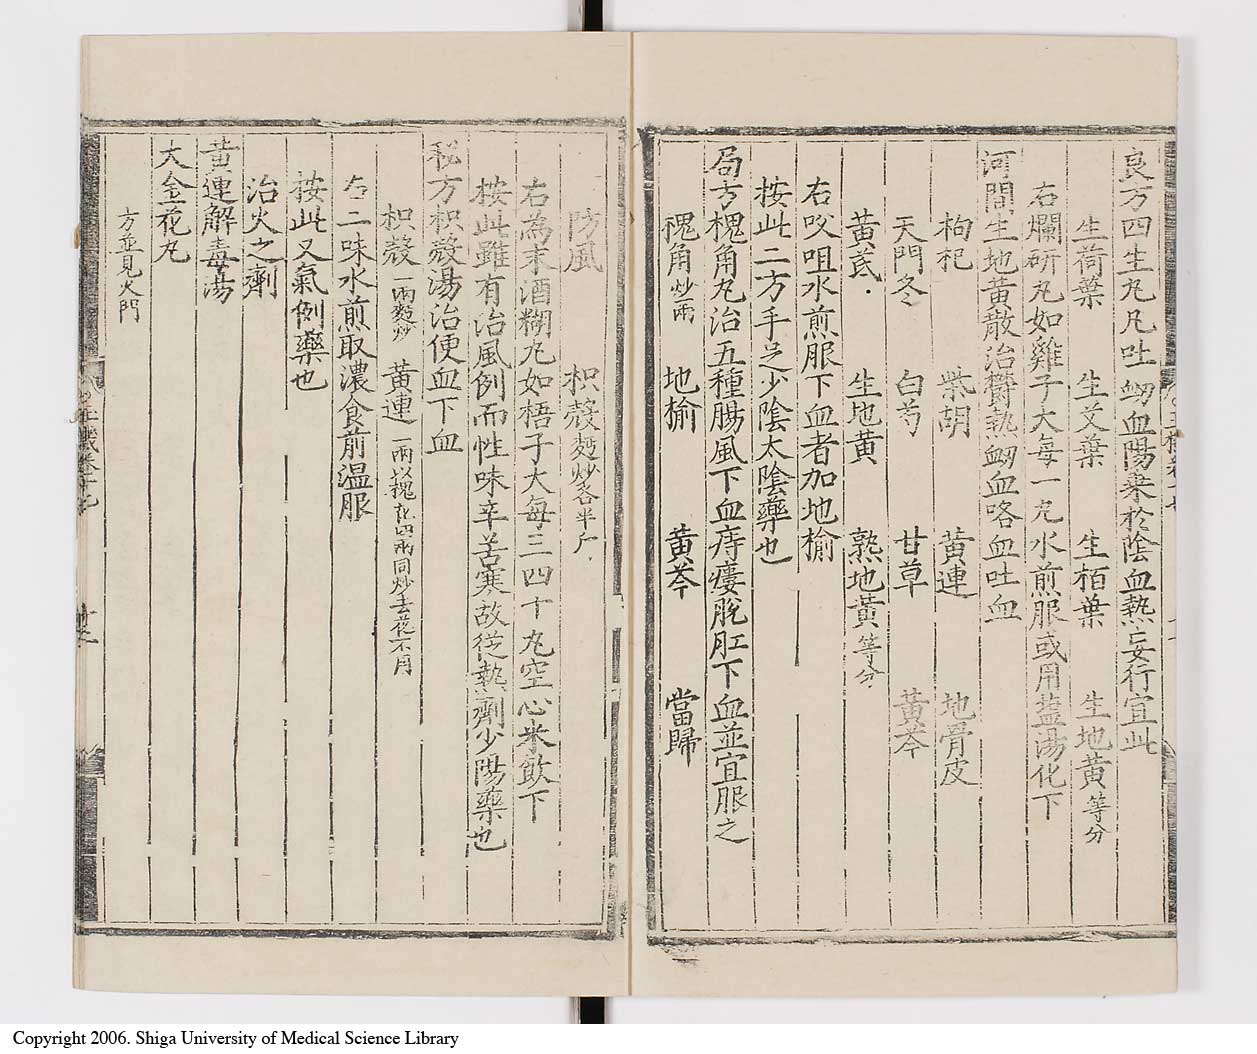 良方四生丸凡吐衂血陽乘於陰血熱妄行宜此
生荷葉 生艾葉 生栢葉 生地黄等分
右爛研丸如雞子大每一丸水煎服或用盐湯化下
河間生地黄散治欝熱衂血咯血吐血
枸杞 柴胡 黄連 地骨皮
天門冬 白芍 甘草 黄芩
黄芪 生地黄 熟地黄等分
右㕮咀水煎服下血者加地榆
按此二方手足少陰太陰藥也
局方槐角丸治五種腸風下血痔瘻脫肛下血並宜服之
槐角炒一兩 地榆 黄芩 當歸
防風 枳殻麪炒各半斤
右為末酒糊丸如梧子大每三四十丸空心米飲下
按此雖有治風例而性味辛苦寒故從熱劑少陽藥也
秘方枳殻湯治便血下血
枳殻一兩麪炒 黄連一兩以槐花四兩同炒去花不用
右二味水煎取濃食前温服
按此又氣例藥也
治火之劑
黄連解毒湯
大金花丸
方並見火門
Copyright 2006. Shiga University of Medical Science Library